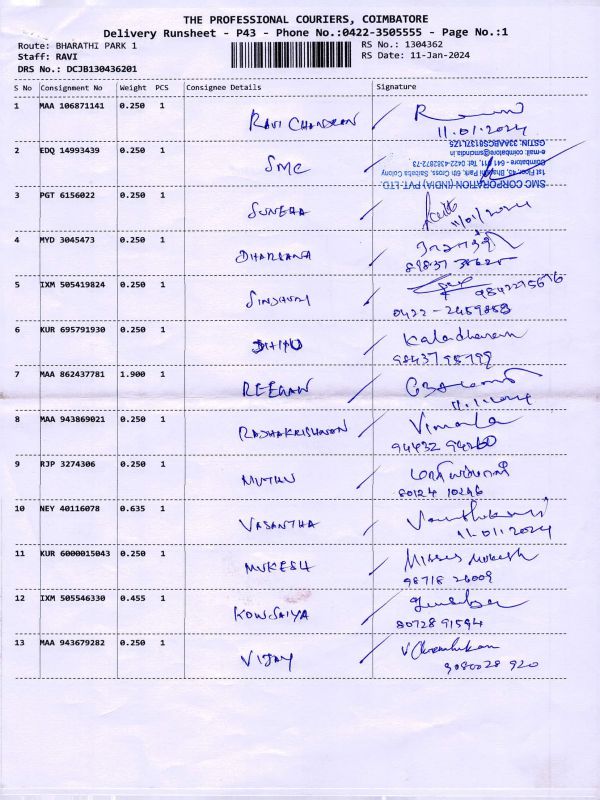 THE PROFESSIONAL COURIERS, COIMBATORE
Delivery Runsheet - P43 - Phone No.:0422-3505555 - Page No.:1
Route: BHARATHI PARK 1
Staff: RAVI
DRS No.: DCJB130436201
RS No.: 1304362
RS Date: 11-Jan-2024
S No Consignment No Weight PCS Consignee Details Signature
1 MAA 106871141 0.250 1 RAVI CHANDRAN
11.01.2024
2 EDQ 14993439 0.250 1 SMC
SMC CORPORATION (INDIA) PVT. LTD.
1st Floor, 45, Bharathi Park, 6th Cross, Saibaba Colony
Coimbatore - 641 011. Tel: 0422-4382872-73
3 PGT 6156022 0.250 1 SUNEHA
11/01/2024
4 MYD 3045473 0.250 1 DHARSANA
5 IXM 505419824 0.250 1 SINDHURI
0422 - 2459853
6 KUR 695791930 0.250 1
Kaladharan
98437 95799
7 MAA 862437781 1.900 1 REEGAN
11.1.2024
8 MAA 943869021 0.250 1 RADHAKRISHNAN
Vimala
94432 94260
9 RJP 3274306 0.250 1 MUTHU
80124 10246
10 NEY 40116078 0.635 1 VASANTHA
11.01.2024
11 KUR 6000015043 0.250 1 MUKESH
Misses Mukesh
98718 26009
12 IXM 505546330 0.455 1 KOWSALYA
80728 91594
13 MAA 943679282 0.250 1 VIJAY
9080028 920